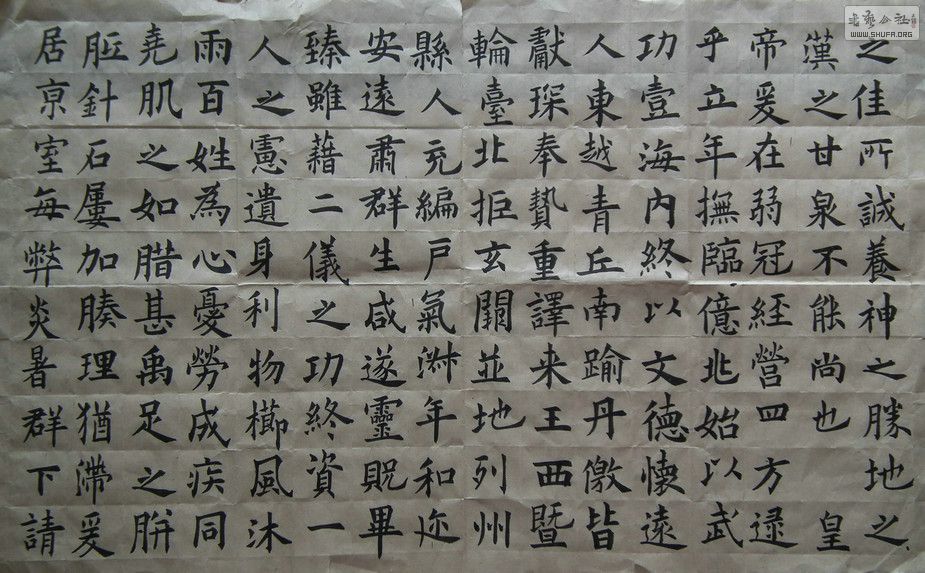 之佳所誠養神之勝地之
漢之甘泉不能尚也 皇
帝爰在弱冠經營四方逮
乎立年撫臨億兆始以武
功壹海內終以文德懷遠
人東越青丘南踰丹儌皆
獻琛奉贄重譯来王西暨
輪臺北拒玄闕並地列州
縣人充編戶氣淑年和迩
安遠肅群生咸遂靈貺畢
臻雖藉二儀之功終資一
人之慮遺身利物櫛風沐
雨百姓為心憂勞成疾同
堯肌之如腊甚禹足之胼
胝針石屢加腠理猶滯爰
居京室每弊炎暑群下請
WWW.SHUFA.ORG